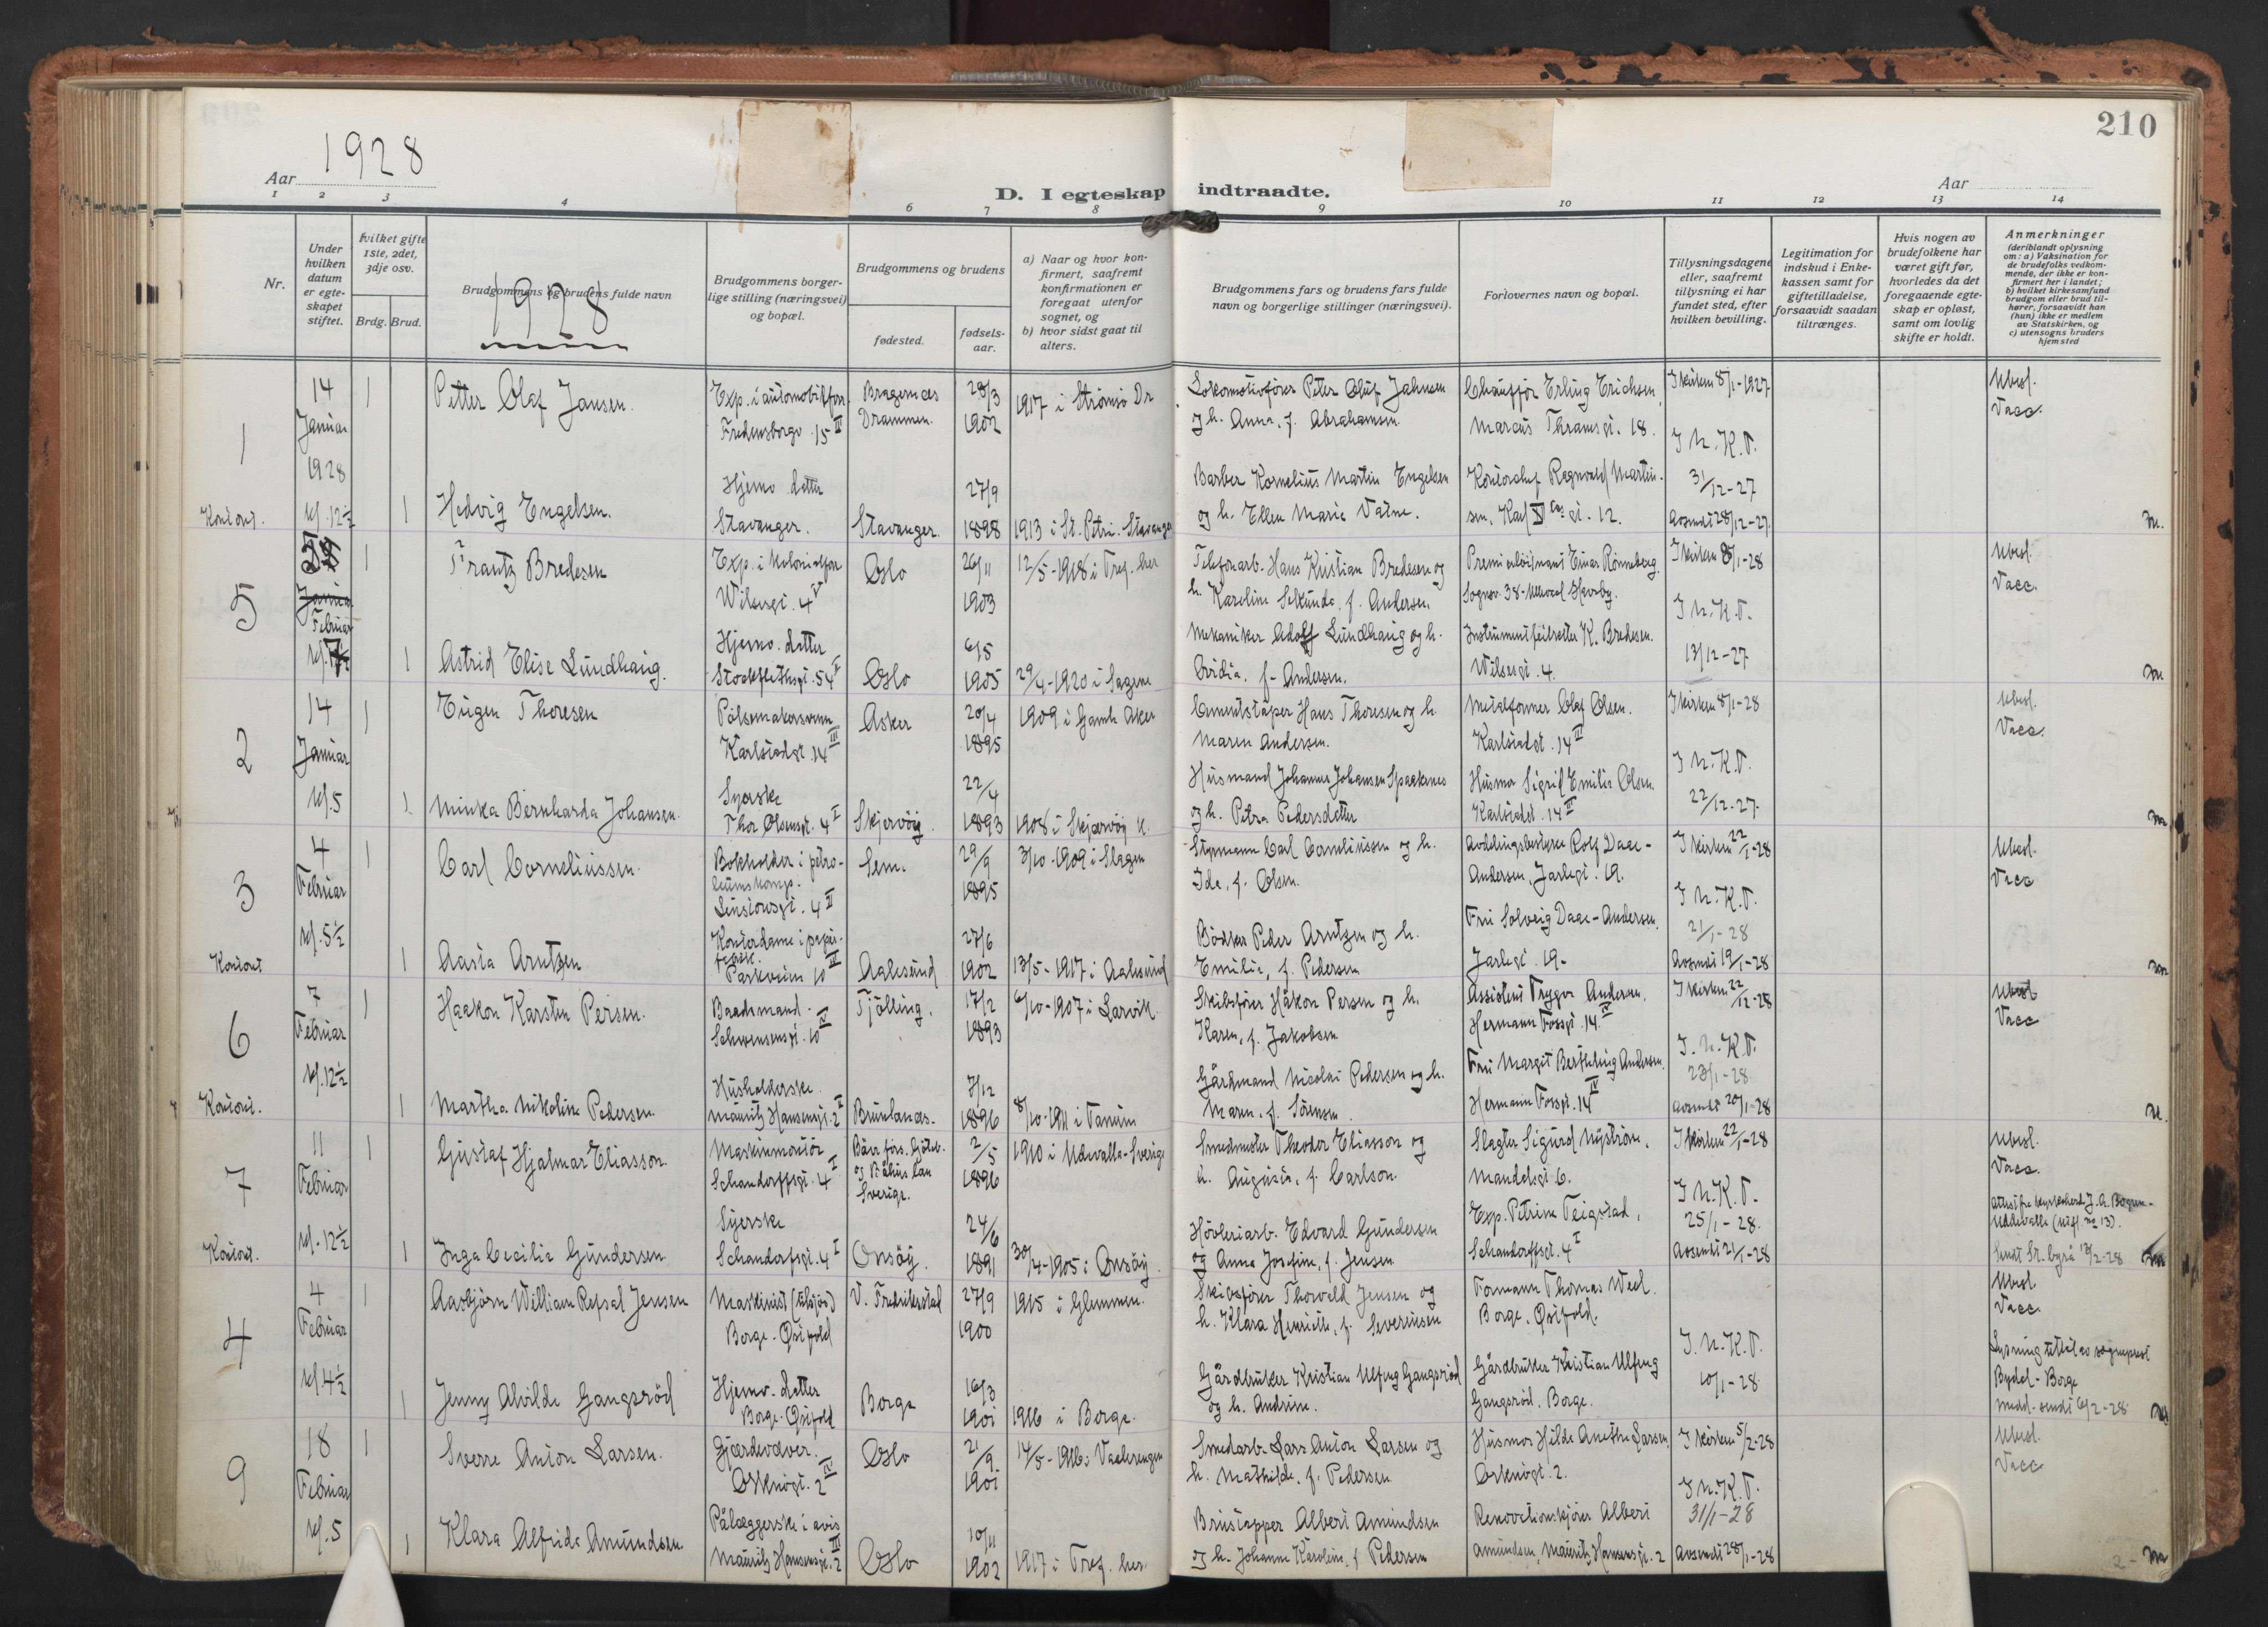 210
Aar 1928
D. I egteskap indtraadte.
Aar
1 2 3 4 6 7 8 9 10 11 12 13 14
Nr.
Under hvilken datum er egteskapet stiftet.
hvilket gifte 1ste, 2det, 3dje osv.
Brdg. Brud.
Brudgommens og brudens fulde navn
1928
Brudgommens borgerlige stilling (næringsvei) og bopæl.
Brudgommens og brudens
fødested.
fødselsaar.
a) Naar og hvor konfirmert, saafremt konfirmationen er foregaat utenfor sognet, og
b) hvor sidst gaat til alters.
Brudgommens fars og brudens fars fulde navn og borgerlige stillinger (næringsvei).
Forlovernes navn og bopæl.
Tillysningsdagene eller, saafremt tillysning ei har fundet sted, efter hvilken bevilling.
Legitimation for indskud i Enkekassen samt for giftetilladelse, forsaavidt saadan tiltrænges.
Hvis nogen av brudefolkene har været gift før, hvorledes da det foregaaende egteskap er opløst, samt om lovlig skifte er holdt.
Anmerkninger
(deriblandt oplysning om: a) Vaksination for de brudefolks vedkommende, der ikke er konfirmert her i landet; b) hvilket kirkesamfund brudgom eller brud tilhører, forsaavidt han (hun) ikke er medlem av Statskirken, og c) utensogns bruders hjemsted
1
14 Januar 1928 kl. 12½
1 Petter Olaf Jansen.
Exp. i automobilforr. Fredensborgv. 15 III
Bragernes Drammen.
28/3 1902
1917 i Strömsö Dr
Lokomotivförer Peter Oluf Jahnsen
og h. Anna, f. Abrahamsen.
Chauffør Erling Erichsen,
Marcus Thranesgt. 18.
I kirken 8/1-1927
I N.K.T.
31/12-27
Avsendt 28/12-27.
Ubesl.
Vacc.
Kontoret.
1 Hedvig Engelsen.
Hjemv. datter
Stavanger.
Stavanger.
27/9 1898
1913 i St. Petri. Stavanger
Barber Kornelius Martin Engelsen
og h. Ellen Marie Vatne.
Kontorchef Ragnvald Martinsen, Karl XII gt. 12.
5
Januar Februar
1 Frantz Bredesen
Exp. i kolonialforr.
Wilsesgt. 4 V
Oslo
26/11 1903
12/5-1918 i Tref. her
Telefonarb. Hans Kristian Bredesen og
h. Karoline Sekunda, f. Andersen.
Premierløitnant Einar Rönneberg.
Sognsv. 38-Ullevaal Haveby.
I kirken 8/1-28
I N.K.T.
13/12-27
Ubesl.
Vacc.
1 Astrid Elise Lundhaug.
Hjemv. datter
Stockflethsgt. 54 V
Oslo
6/5 1905
29/4-1920 i Sagene
Mekaniker Adolf Lundhaug og h.
Ovidia, f. Andersen.
K. Bredesen.
Wilsesgt. 4.
2
14 Januar kl. 5
1 Eugen Thoresen
Pölsemakersvenn
Karlstadgt. 14 III
Asker
20/4 1895
1909 i Gamle Aker
Cementstøper Hans Thoresen og h.
Maren Andersen.
Metalformer Olaf Olsen.
Karlstadgt. 14 III
I kirken 8/1-28
I N.K.T.
22/12-27.
Ubesl.
Vacc.
1 Minka Bernharda Johansen.
Syerske
Thor Olsensgt. 4 I
Skjervöy.
22/4 1893
1908 i Skjærvöy K.
Husmand Johannes Johansen Spaaknes
og h. Petra Pedersdatter
Husmor Sigrid Emilie Olsen.
Karlstadgt. 14 III
3
4 Februar kl. 5½
1 Carl Corneliussen.
Bokholder i petroleumskomp.
4 II
Sem.
29/9 1895
3/10-1909 i Slagen
Styrmann Carl Corneliussen og h.
Ida, f. Olsen.
Avdelingsbestyrer Rolf Daae-Andersen, Jarlegt. 19.
I kirken 22/1-28
I N.K.T.
21/1-28
Avsendt 19/1-28
Ubesl.
Vacc
Kontoret
1 Aasta Arntzen
Kontordame i papirfabr.
Parkveien 10 IV
Aalesund
27/6 1902
13/5-1917 i Aalesund
Bödker Peder Arntzen og h.
Emilie, f. Pedersen
Fru Solveig Daae-Andersen.
Jarlegt. 19.
6
7 Februar kl. 12½
1 Haakon Karsten Persen.
Baadsmand.
Schwensensgt. 10 IV
Tjölling.
17/2 1893
6/10-1907 i Larvik.
Skibsfører Håkon Persen og h.
Karen, f. Jakobsen
Assistent Trygve Andersen.
Hermann Fossgt. 14 IV
I kirken 22/12-28
I. N.K.T.
23/1-28
Avsendt 20/1-28
Ubesl
Vacc
Kontoret.
1 Martha Nikoline Pedersen
Husholderske.
Mauritz Hansensgt. 2 I
Brunlanes.
7/12 1896
8/10-1911 i Tanum
Gårdmand Nicolai Pedersen og h.
Maren, f. Sörensen.
Fru Margit Berthling Andersen.
Hermann Fossgt. 14 IV
7
11 Februar kl. 12½
1 Gustaf Hjalmar Eliasson
Maskinmontör
Schandorffsgt. 4 I
Bärr fors. Göteb. og Båhus län Sverige.
2/5 1896
1910 i Udevalla-Sverige
Smedmester Theodor Eliasson og
h. Augusta, f. Carlson.
Slagter Sigurd Nyström.
Mandalsgt. 6.
I kirken 22/1-28
I N.K.T.
25/1-28.
Avsendt 21/1-28
Ubesl.
Vacc.
Uddevalla (utfl. no 13).
Sendt St. byrå 13/2-28
Kontoret.
1 Inga Cecilie Gundersen
Syerske
Schandorfsgt. 4 I
Onsöy.
24/6 1891
30/4-1905 i Onsöy
Hövleriarb. Edvard Gundersen
og Anna Josefine, f. Jensen
Exp. Petrine Teigstad,
Schandorffsgt. 4 I
4
4 Februar kl. 4½
1 Aasbjörn William Refsal Jensen
Maskinist (tilsjøs)
Borge-Østfold
V. Fredrikstad
27/9 1900
1915 i Glemmen.
Skibsfører Thorvald Jensen og
h. Klara Henriette, f. Severinsen
Formann Thomas Weel.
Borge, Østfold.
I. N.K.T.
10/1-28
Ubesl
Vacc.
Lysning av sogneprest
Bydal-Borge
medd. sendt 6/2-28
1 Jenny Alvilde Gangsröd
Hjemv. datter
Borge-Østfold
Borge
16/3 1901
1916 i Borge.
Gårdbruker Kristian Ulfeng Gangsröd
og h. Andrine.
Gårdbruker Kristian Ulfeng
Gangsröd, Borge.
9
18 Februar kl. 5
1 Sverre Anton Larsen.
Gjærdevæver.
Orknögt. 2 IV
Oslo
21/9 1901
14/5-1916 i Vaalerengen
Smedarb. Lars Anton Larsen og
h. Mathilde, f. Pedersen
Husmor Hilda Anethe Larsen,
Orknögt. 2.
I kirken 5/2-28
I N.K.T.
31/1-28
Avsendt 28/1-28
Ubesl.
Vacc
1 Klara Alfrida Amundsen
Pålæggerske i avis
Mauritz Hansensgt. 2 III
Oslo
10/11 1902
1917 i Tref. her.
Brustapper Albert Amundsen
og h. Johanne Karoline, f. Pedersen
Renovationskjører Albert
Amundsen, Mauritz Hansensgt. 2